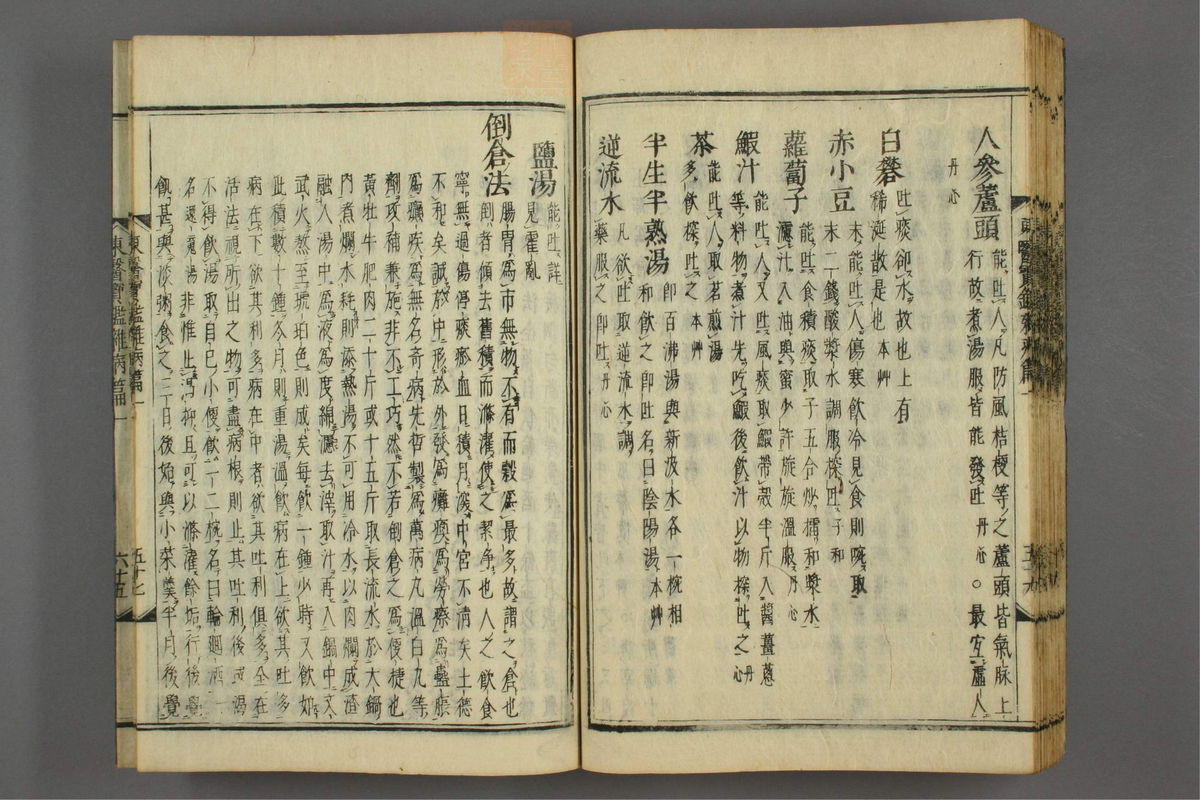 人參蘆頭 能吐人凡防風桔梗等之蘆頭皆氣脉上
行故煮湯服皆能發吐丹心○最宜虛人
丹心
白礬 吐痰卻水故也上有
稀涎散是也本艸
赤小豆 末能吐人傷寒飲冷見食則噦取
末二錢酸漿水調服探吐子和
蘿蔔子 能吐食積痰取子五合炒擂和漿水
濾汁入油與蜜少許旋旋溫服丹心
鰕汁 能吐人又吐風痰取鰕帶殼半斤入醬薑蔥
等料物煮汁先吃鰕後飲汁以物探吐之丹心
茶 能吐人取茗煎湯
多飲探吐之本艸
半生半熟湯 即百沸湯與新汲水各一椀相
和飲之即吐名曰陰陽湯本艸
逆流水 凡欲吐取逆流水調
藥服之即吐丹心
鹽湯 能吐詳
見霍亂
倒倉法 腸胃爲市無物不有而穀爲最多故謂之倉也
倒者傾去舊積而滌濯使之潔淨也人之飲食
寧無過傷停痰瘀血日積月深中宮不淸矣土德
不和矣誠於中形於外發爲癱瘓爲勞瘵爲蠱脹
爲癩疾爲無名奇病先哲製爲萬病丸溫白丸等
劑攻補兼施非不工巧然不若倒倉之爲便捷也
黃牡牛肥肉二十斤或十五斤取長流水於大鍋
內煮爛水耗則添熱湯不可用冷水以肉爛成渣
融入湯中爲液爲度綿濾去滓取汁再入鍋中文
武火熬至琥珀色則成矣每飲一鍾少時又飲如
此積數十鍾冬月則重湯溫飲病在上欲其吐多
病在下欲其利多病在中者欲其吐利俱多全在
活法視所出之物可盡病根則止其吐利後或渴
不得飲湯取自己小便飲一二椀名曰輪廻酒一
名還魂湯非惟止渴抑且可以滌濯餘垢行後覺
飢甚與淡粥食之三日後始與小菜羹半月後覺
東醫寶鑑雜病篇一
五十七
東醫寶鑑雜病篇一
六十五